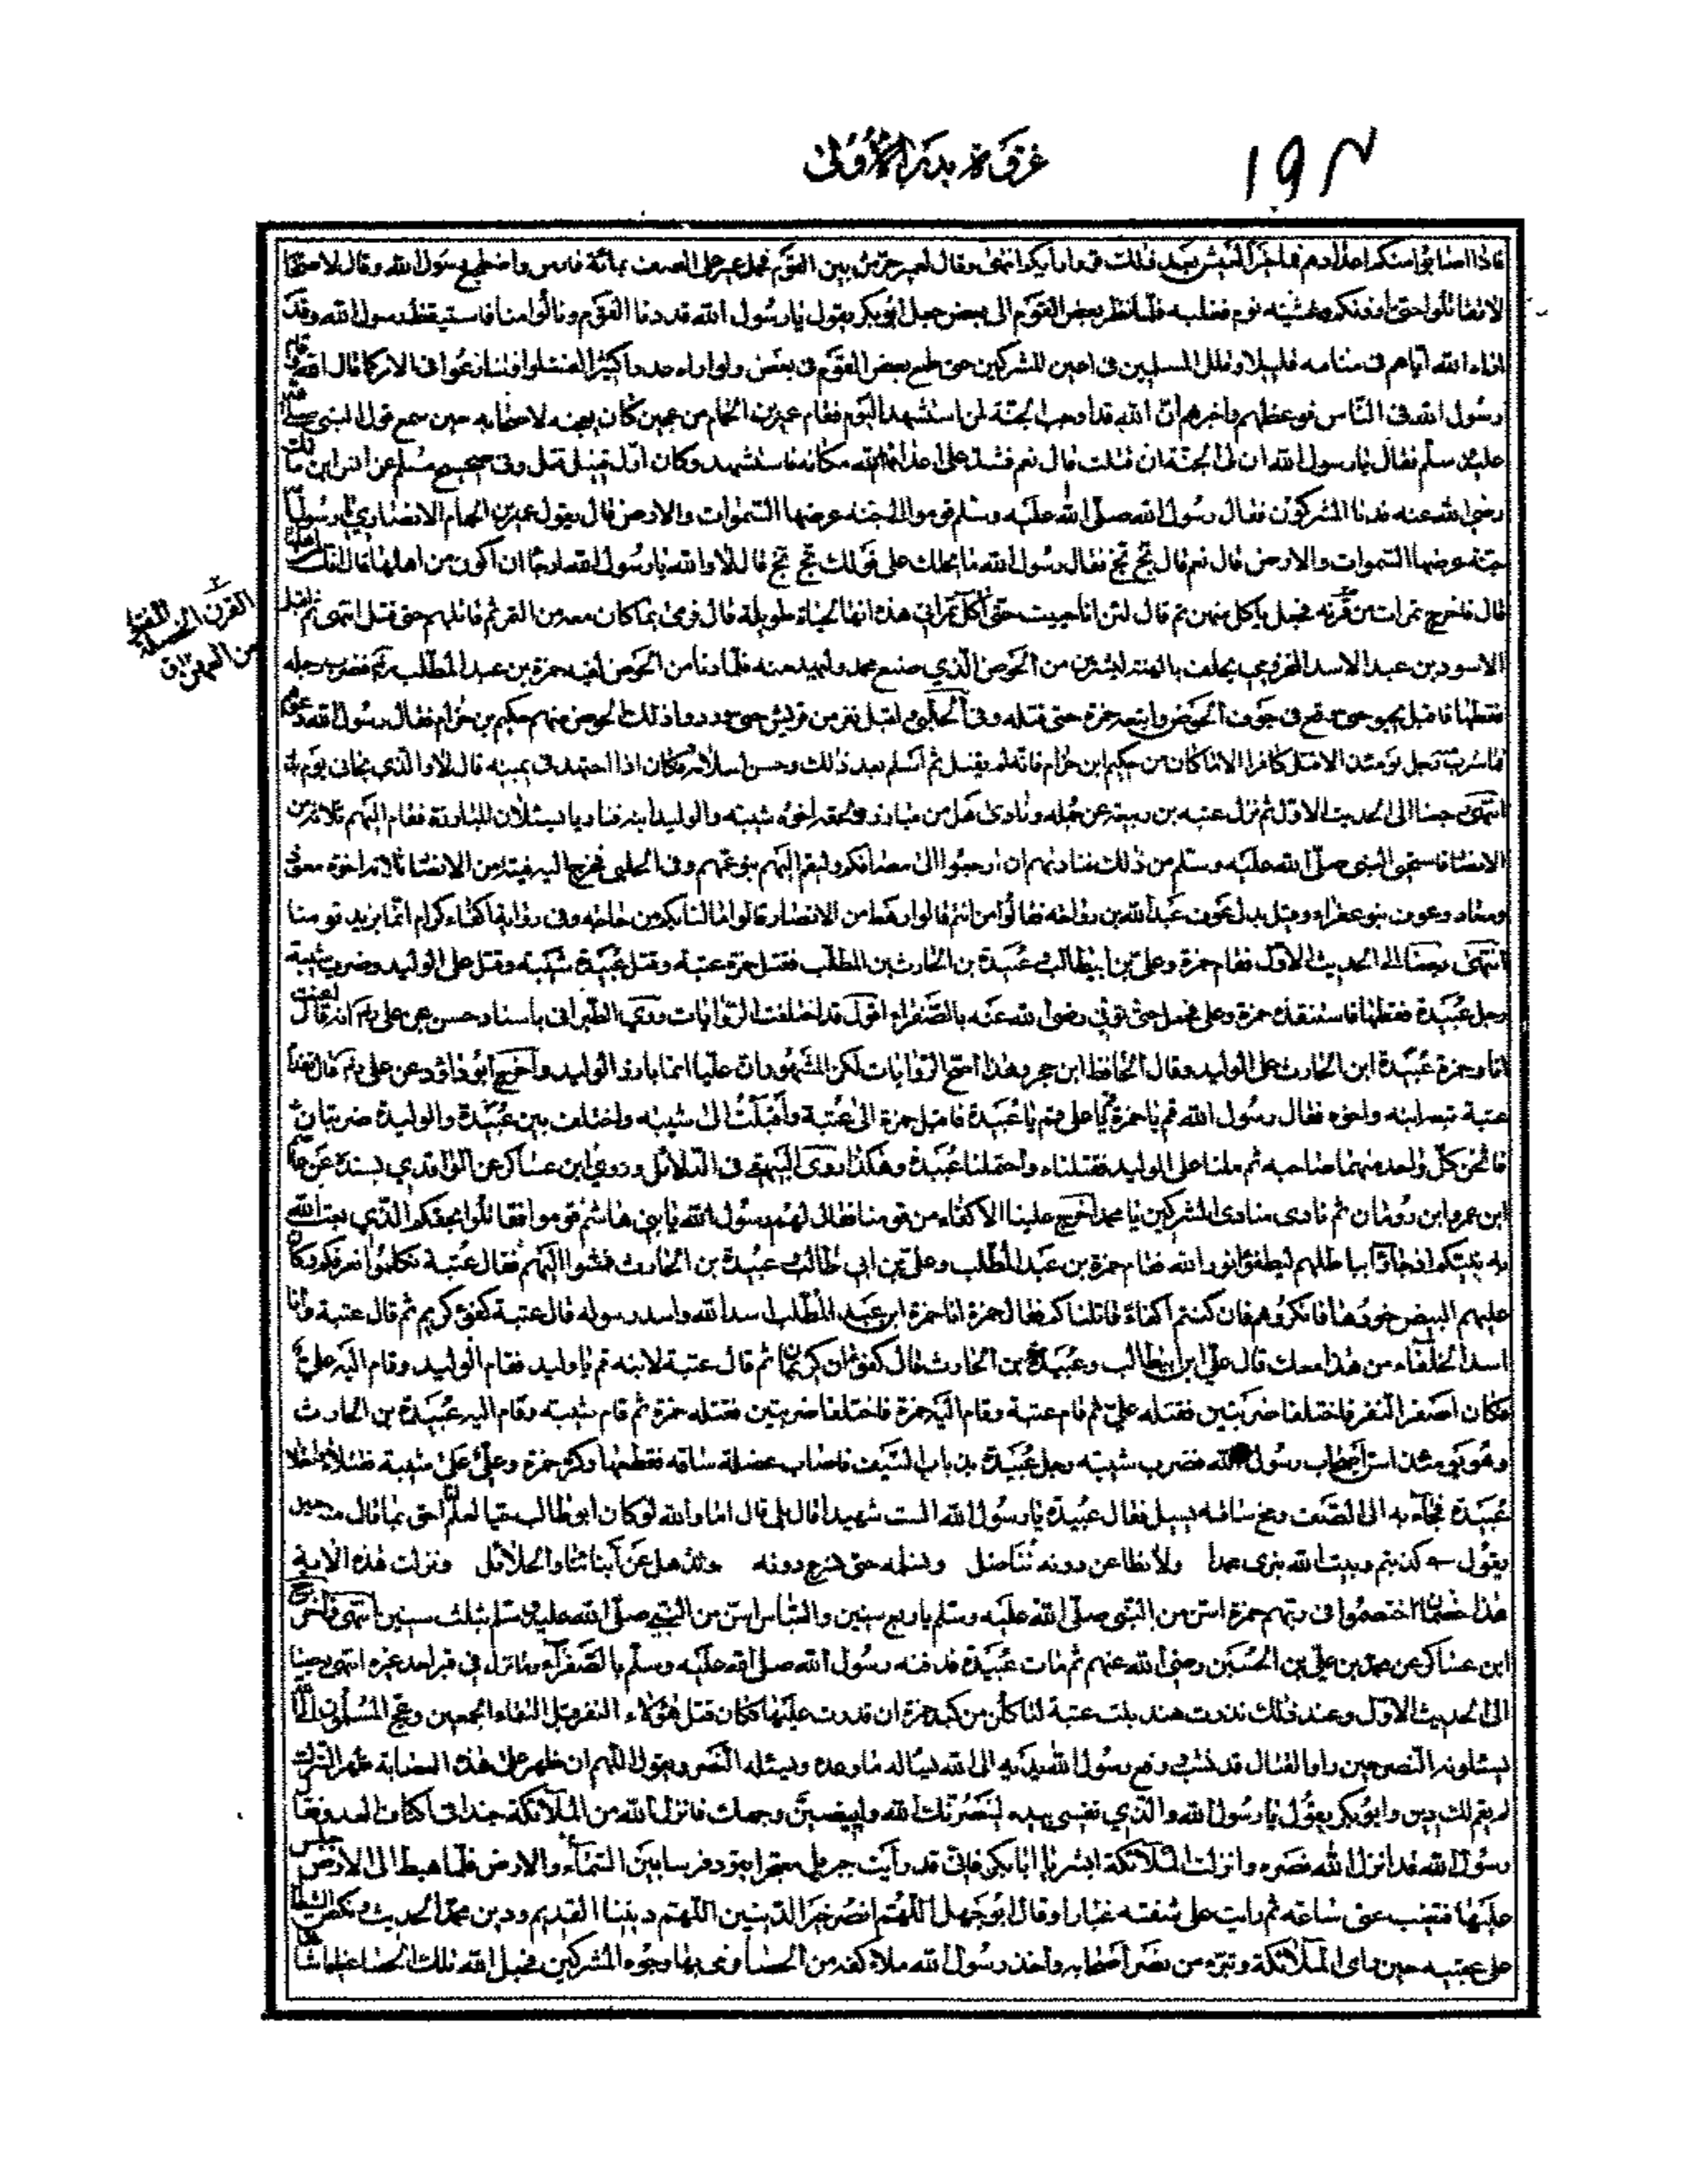 ١٩٣
غزوة بدر الأولى
فاذا اصابوا منكم اعدادهم فما خير العيش بعد ذلك فروا رأيكم انتهى وقال بين القوم فحمل على الصف بمائة فارس واضطجع رسول الله وقال لاصحابه
لا تقاتلوا حتى اوذنكم وغشيه نوم فغلبه فلما نظر بعض القوم الى بعض جعل ابوبكر يقول يا رسول الله قد دنا القوم ونالوا منا فاستيقظ رسول الله وقد
اراه الله اياهم فى منامه قليلا وقلل المسلمين فى اعين المشركين حتى طمع بعض القوم فى بعض ولو اراه عددا كثيرا لفشلوا ولتنازعوا فى الامر كما قال الله قام
رسول الله فى الناس فوعظهم واخبرهم ان الله قد اوجب الجنة لمن استشهد اليوم فقام عمير بن الحمام من عجين كان يعجنه لاصحابه حين سمع قول النبى صلى الله
عليه وسلم فقال يا رسول الله ان لى الجنة ان قتلت قال نعم فشد على اعداء الله مكانه فاستشهد وكان اول قتيل قتل وفى صحيح مسلم عن انس ابن مالك
رضى الله عنه فدنا المشركون فقال رسول الله صلى الله عليه وسلم قوموا الى جنة عرضها السموات والارض قال يقول عمير بن الحمام الانصاري يا رسول الله
جنة عرضها السموات والارض قال نعم قال بخ بخ فقال رسول الله ما يحملك على قولك بخ بخ قال لا والله يا رسول الله الا رجاء ان اكون من اهلها قال فانك من اهلها
قال فاخرج تمرات من قرنه فجعل ياكل منهن ثم قال لئن انا حييت حتى آكل تمراتى هذه انها لحياة طويلة قال فرمى بما كان معه من التمر ثم قاتلهم حتى قتل انتهى ثم اقبل
الاسود بن عبد الاسد المخزومى يحلف بالهته ليشربن من الحوض الذي صنع محمد وليهدمنه فلما دنا من الحوض لقيه حمزة بن عبد المطلب رض فضرب رجله
فقطعها فاقبل يحبو حتى وقع فى جوف الحوض واتبعه حمزة حتى قتله وفى الحلبى واقبل نفر من قريش حتى وردوا ذلك الحوض منهم حكيم بن حزام فقال رسول الله دعوهم
فما شرب رجل يومئذ الا قتل كافرا الا ما كان من حكيم ابن حزام فانه لم يقتل ثم اسلم بعد ذلك وحسن اسلامه وكان اذا اجتهد فى يمينه قال لا والذي نجانى يوم بدر
انتهى رجعنا الى الحديث الاول ثم نزل عتبه بن ربيعة عن جمله ونادى هل من مبارز ولحقه اخوه شيبه والوليد ابنه فناديا يسئلان للمبارزة فقام اليهم ثلاثة من
الانصار فاستحى النبى صلى الله عليه وسلم من ذلك فناديهم ان ارجعوا الى مصافكم وليقم اليهم بنو عمهم وفى الحلبى فخرج اليه فتية من الانصار ثلاثة اخوة معوذ
ومعاذ وعوف بنو عفراء وقيل بدل عوف عبد الله بن رواحة فقالوا من انتم قالوا رهط من الانصار قالوا ما لنا بكم من حاجة وفى رواية اكفاء كرام انما نريد قومنا
انتهى رجعنا الى الحديث الاول فقام حمزة وعلى بن ابيطالب عبيدة بن الحارث بن المطلب فقتل حمزة عتبة وقتل عبيدة شيبة وقتل على الوليد وضرب شيبة
رجل عبيدة فقطعها فاستنقذه حمزة وعلى فحمل حتى توفى رضى الله عنه بالصفراء اقول قد اختلفت الروايات وروي الطبرانى باسناد حسن عن على رض انه قال اعنت
انا وحمزة عبيدة ابن الحارث على الوليد وقال الحافظ ابن حجر وهذا اصح الروايات لكن المشهور ان عليا انما بارز الوليد واخرج ابو داود عن على رض قال تقدم
عتبة تبعه ابنه واخوه فقال رسول الله قم يا حمزة قم يا على قم يا عبيدة فاقبل حمزة الى عتبة واقبلت الى شيبه واختلف بين عبيدة والوليد ضربتان
فاثخن كل واحد منهما صاحبه ثم ملنا على الوليد فقتلناه واحتملنا عبيدة وهكذا روى البيهقى فى الدلائل وروى ابن عساكر عن الواقدي بسنده عن
ابن عمر وابن رومان ثم نادى منادى المشركين يا محمد اخرج علينا الاكفاء من قومنا فقال لهم رسول الله يا بنى هاشم قوموا فقاتلوا بحقكم الذي بعث الله
به نبيكم اذ جاؤا بباطلهم ليطفؤا نور الله فقام حمزة بن عبد المطلب وعلى بن ابى طالب عبيدة بن الحارث فمشوا اليهم فقال عتبة تكلموا نعرفكم وكان
عليهم البيض فان كنتم اكفاء قاتلناكم فقال حمزة انا حمزة ابن عبد المطلب اسد الله واسد رسوله قال عتبة كفؤ كريم ثم قال عتبة وانا
اسد الحلفاء من هذا معك قال على ابن ابيطالب وعبيدة بن الحارث قال كفؤان كريمان ثم قال عتبة لابنه قم يا وليد فقام الوليد وقام اليه على
وكان اصغر النفر فاختلفا ضربتين فقتله على ثم قام عتبة وقام اليه حمزة فاختلفا ضربتين فقتله حمزة ثم قام شيبه وقام اليه عبيدة بن الحارث
وهو يومئذ اسن اصحاب رسول الله فضرب شيبه رجل عبيدة بذباب السيف فاصاب عضلة ساقه فقطعها وكر حمزة وعلى على شيبة فقتلاه واحتملا
عبيدة فجاء به الى الصف ومخ ساقه يسيل فقال عبيدة يا رسول الله الست شهيدا قال بلى قال اما والله لو كان ابو طالب حيا لعلم انى احق بما قال منه حين
يقول كذبتم وبيت الله يبزى محمدا ولما نطاعن دونه ونناضل ونسلمه حتى نصرع دونه ونذهل عن ابنائنا والحلائل ونزلت هذه الاية
هذان خصمان اختصموا فى ربهم حمزة اسن من النبى صلى الله عليه وسلم باربع سنين والعباس اسن من النبى صلى الله عليه وسلم بثلث سنين انتهى واخرج
ابن عساكر عن محمد بن على بن الحسين رضى الله عنهم ثم مات عبيدة فدفنه رسول الله صلى الله عليه وسلم بالصفراء وما نزل فى قبر احد غيره انتهى رجعنا
الى الحديث الاول وعند ذلك نذرت هند بنت عتبة لتاكلن من كبد حمزة ان قدرت عليها فكان قتل هؤلاء النفر قبل التقاء الجمعين وعج المسلمون الى الله
يسئلونه النصر حين راوا القتال قد نشب ورفع رسول الله يديه الى الله يساله ما وعده ويسئله النصر ويقول اللهم ان ظهر على هذه العصابة ظهر الشرك
لم يقم لك دين وابوبكر يقول يا رسول الله والذي نفسى بيده لينصرنك الله وليبيضن وجهك فانزل الله من الملائكة جندا فى اكتاف العدو فقال
رسول الله قد انزل الله نصره وانزلت الملائكة ابشر يا ابا بكر فانى قد رأيت جبريل معتجرا يقود فرسا بين السماء والارض فلما هبط الى الارض جلس
عليها فتغيب عنى ساعة ثم رايت على شفته غبارا وقال ابو جهل اللهم انصر خير الدينين اللهم ديننا القديم ودين محمد الحديث ونكص الشيطان
على عقبيه حين راى الملائكة وتبرء من نصر اصحابه واخذ رسول الله ملاء كفه من الحصباء ورمى بها وجوه المشركين فجعل الله تلك الحصباء عظيما شانها
القرن
من